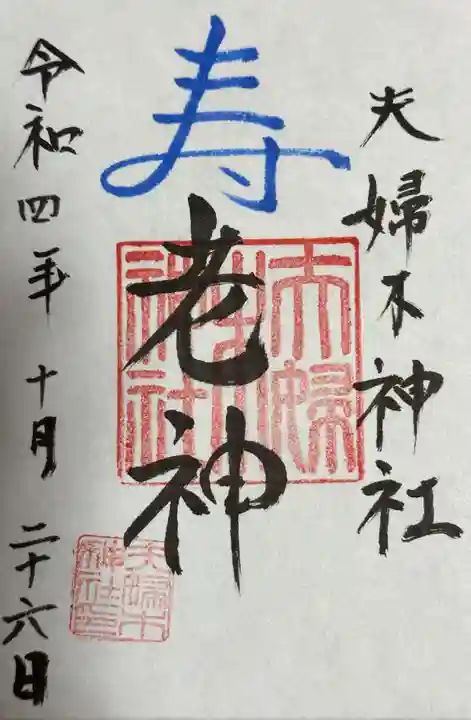 夫婦木神社
寿老神
令和四年十月二十六日
夫婦木神社
夫婦木神社印